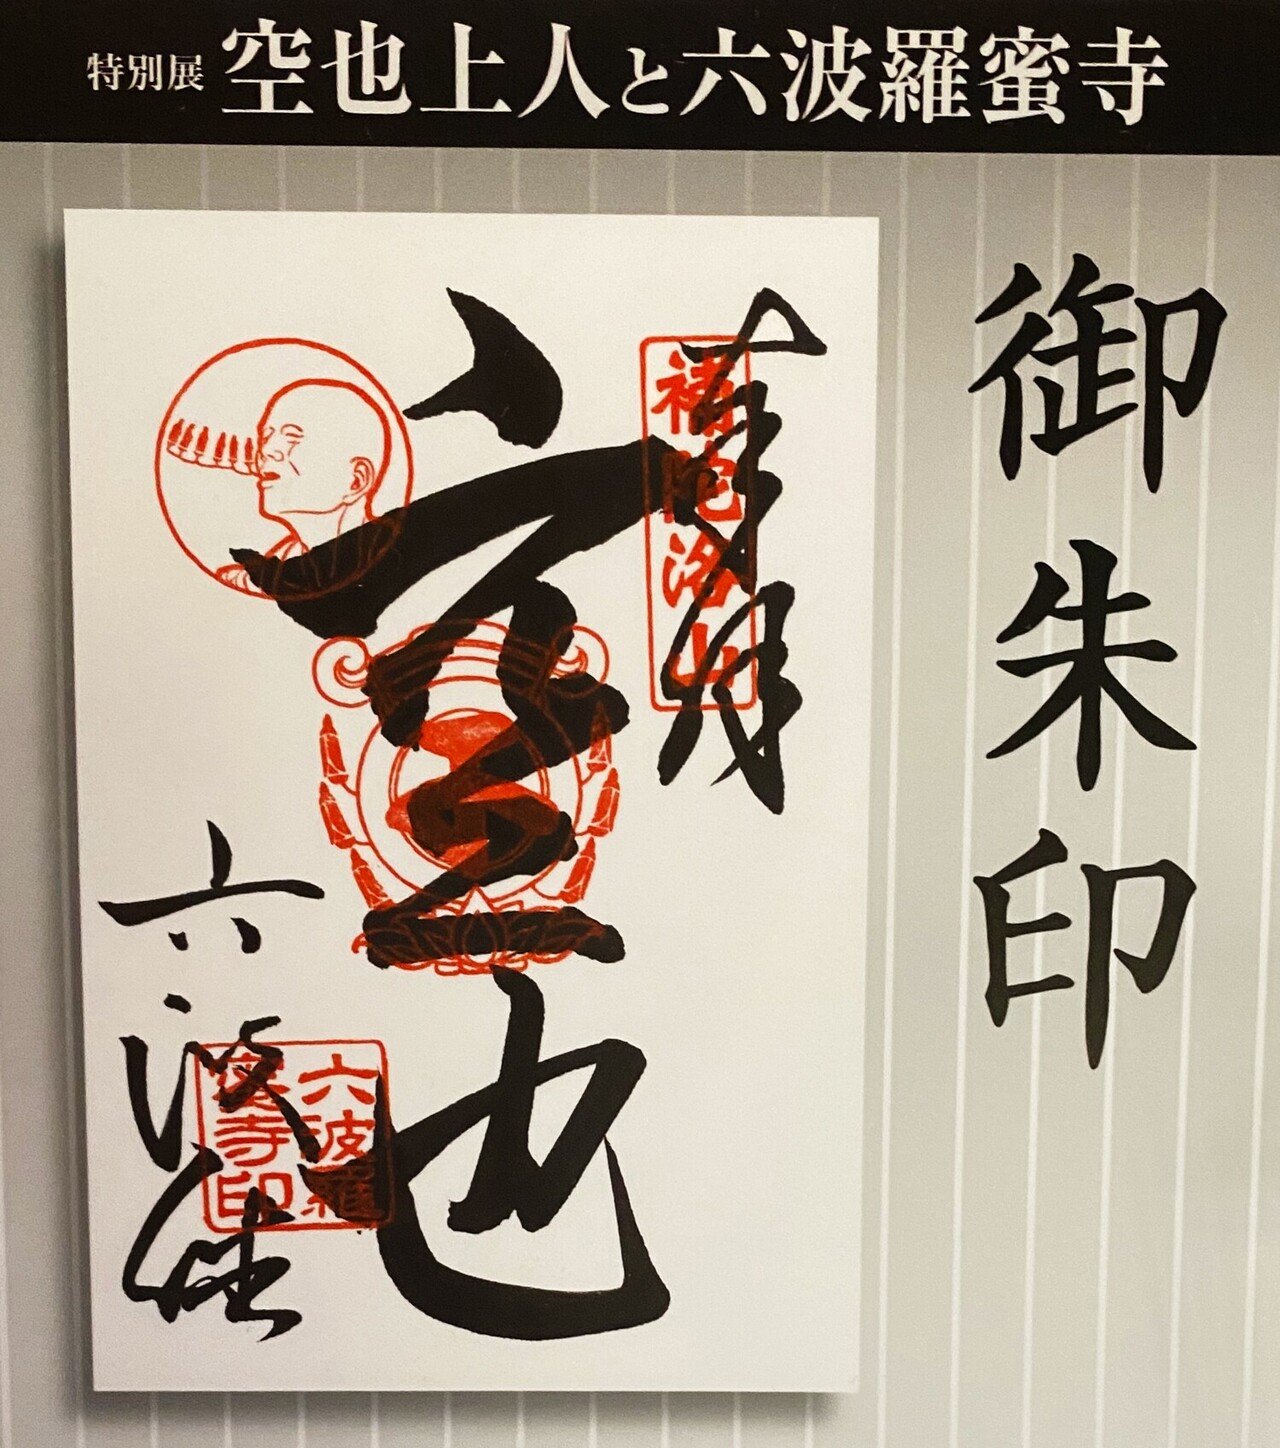 特別展 空也上人と六波羅蜜寺
御朱印
奉拝
補陀洛山
空也
六波羅
六波羅
蜜寺印